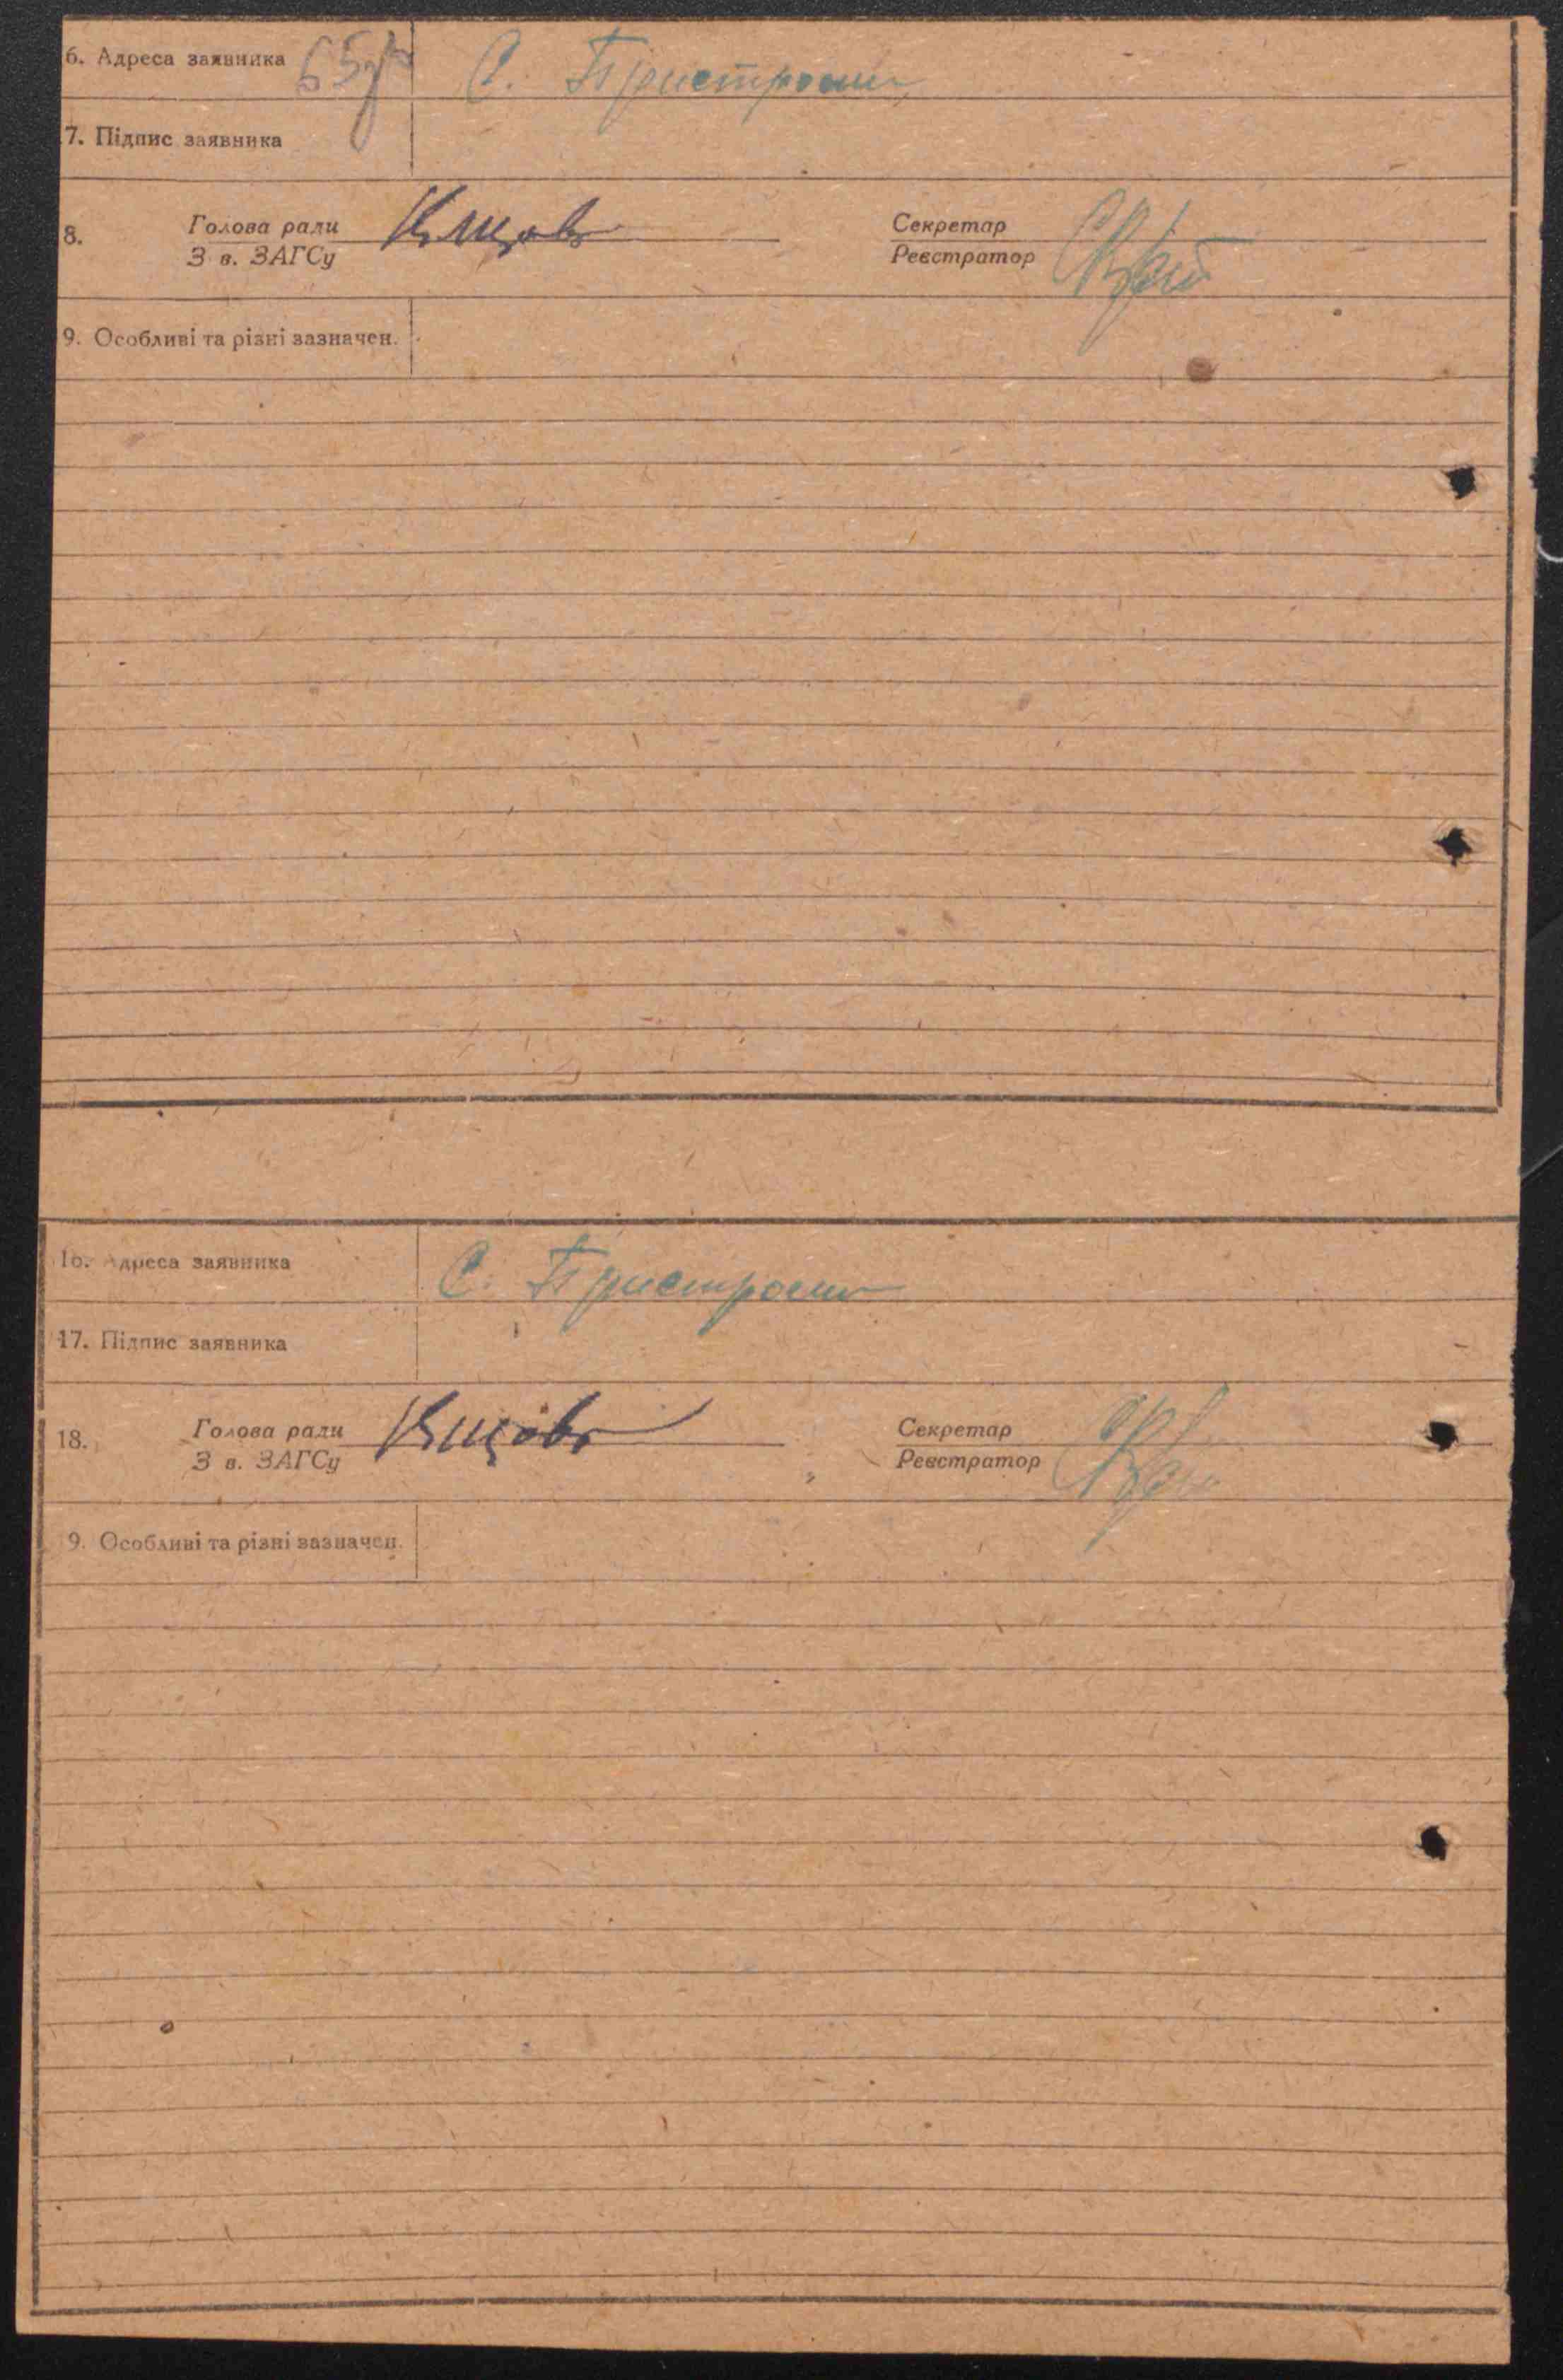 6. Адреса заявника 65зв С. Пристроми
7. Підпис заявника
8. Голова ради Кищов Секретар
З в. ЗАГСу Реєстратор
9. Особливі та різні зазначен.
16. Адреса заявника С. Пристроми
17. Підпис заявника
18. Голова ради Кищов Секретар
З в. ЗАГСу Реєстратор
9. Особливі та різні зазначен.